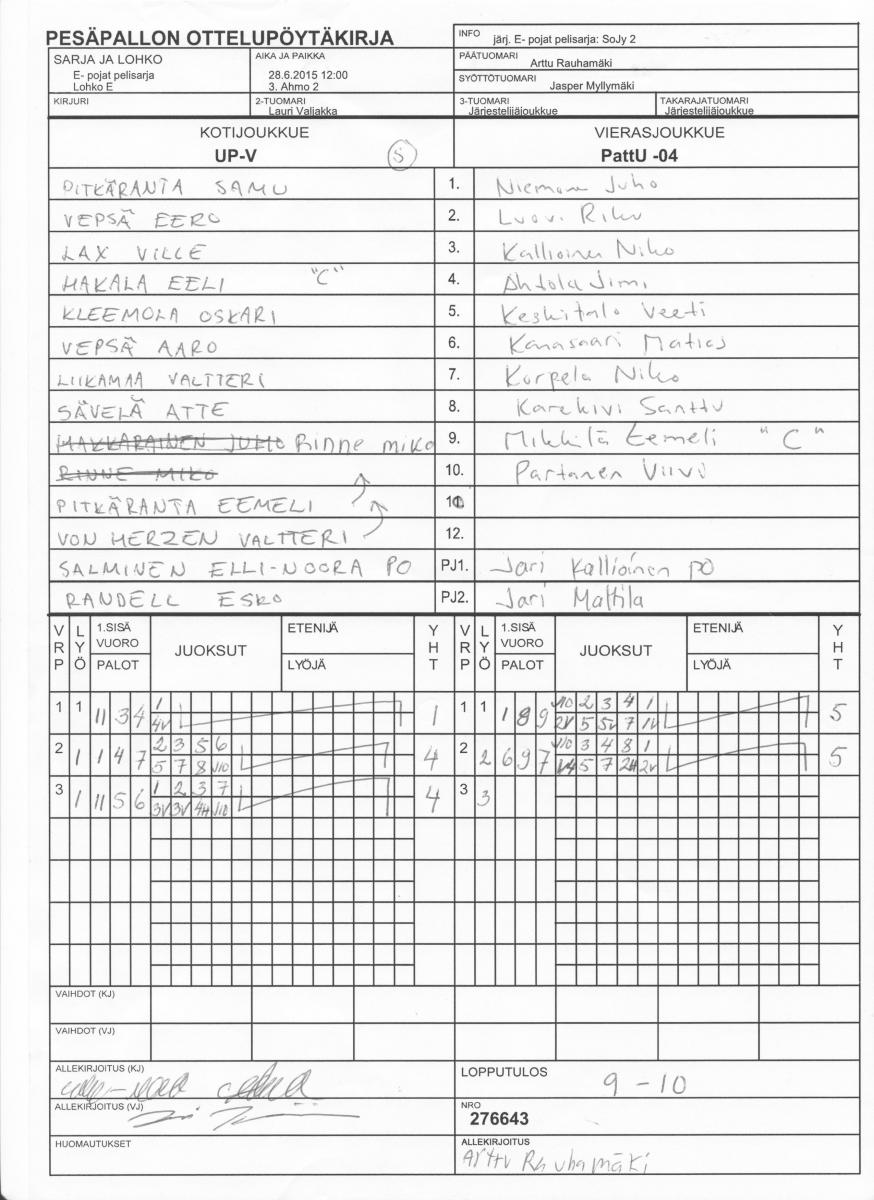 PESÄPALLON OTTELUPÖYTÄKIRJA
INFO järj. E- pojat pelisarja: SoJy 2
SARJA JA LOHKO
E- pojat pelisarja
Lohko E
AIKA JA PAIKKA
28.6.2015 12:00
3. Ahmo 2
PÄÄTUOMARI
Arttu Rauhamäki
SYÖTTÖTUOMARI
Jasper Myllymäki
KIRJURI
2-TUOMARI
Lauri Valjakka
3-TUOMARI
Järjestelijäjoukkue
TAKARAJATUOMARI
Järjestelijäjoukkue
KOTIJOUKKUE
UP-V S
VIERASJOUKKUE
PattU -04
PITKÄRANTA SAMU 1. Niemonen Juho
VEPSÄ EERO 2. Luovi Riku
LAX VILLE 3. Kallioinen Niko
MAKALA EELI "C" 4. Ahtola Jimi
KLEEMOLA OSKARI 5. Keskitalo Veeti
VEPSÄ AARO 6. Kanasaari Matias
LIIKAMAA VALTTERI 7. Korpela Niko
SÄVELÄ ATTE 8. Karekivi Santtu
MAKKARAINEN JUHO Rinne miko 9. Mikkilä Eemeli "C"
RINNE MIKO 10. Partanen Viivi
PITKÄRANTA EEMELI 11.
VON HERZEN VALTTERI 12.
SALMINEN ELLI-NOORA PO PJ1. Jari Kallioinen PO
RANDELL ESKO PJ2. Jari Mattila
VRP LYÖ 1.SISÄ VUORO PALOT JUOKSUT ETENIJÄ LYÖJÄ YHT VRP LYÖ 1.SISÄ VUORO PALOT JUOKSUT ETENIJÄ LYÖJÄ YHT
1 1 11 3 4 1 1 1 1 1 8 9 J10 2 3 4 1 5
4V 2V 5 5V 7 1V
2 1 1 4 7 2 3 5 6 4 2 2 6 9 7 J10 3 4 8 1 5
5 7 8 J10 V4 5 7 2H 2V
3 1 11 5 6 1 2 3 7 4 3 3
3V 3V 4H J10
VAIHDOT (KJ)
VAIHDOT (VJ)
ALLEKIRJOITUS (KJ)
LOPPUTULOS 9 - 10
ALLEKIRJOITUS (VJ)
NRO
276643
HUOMAUTUKSET
ALLEKIRJOITUS
Arttu Rauhamäki